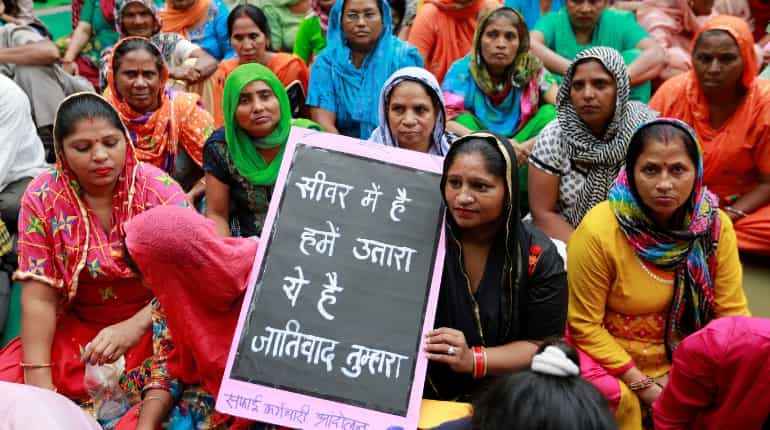 सीवर में है
हमें उतारा
ये है
जातिवाद तुम्हारा
सफाई कर्मचारी आन्दोलन